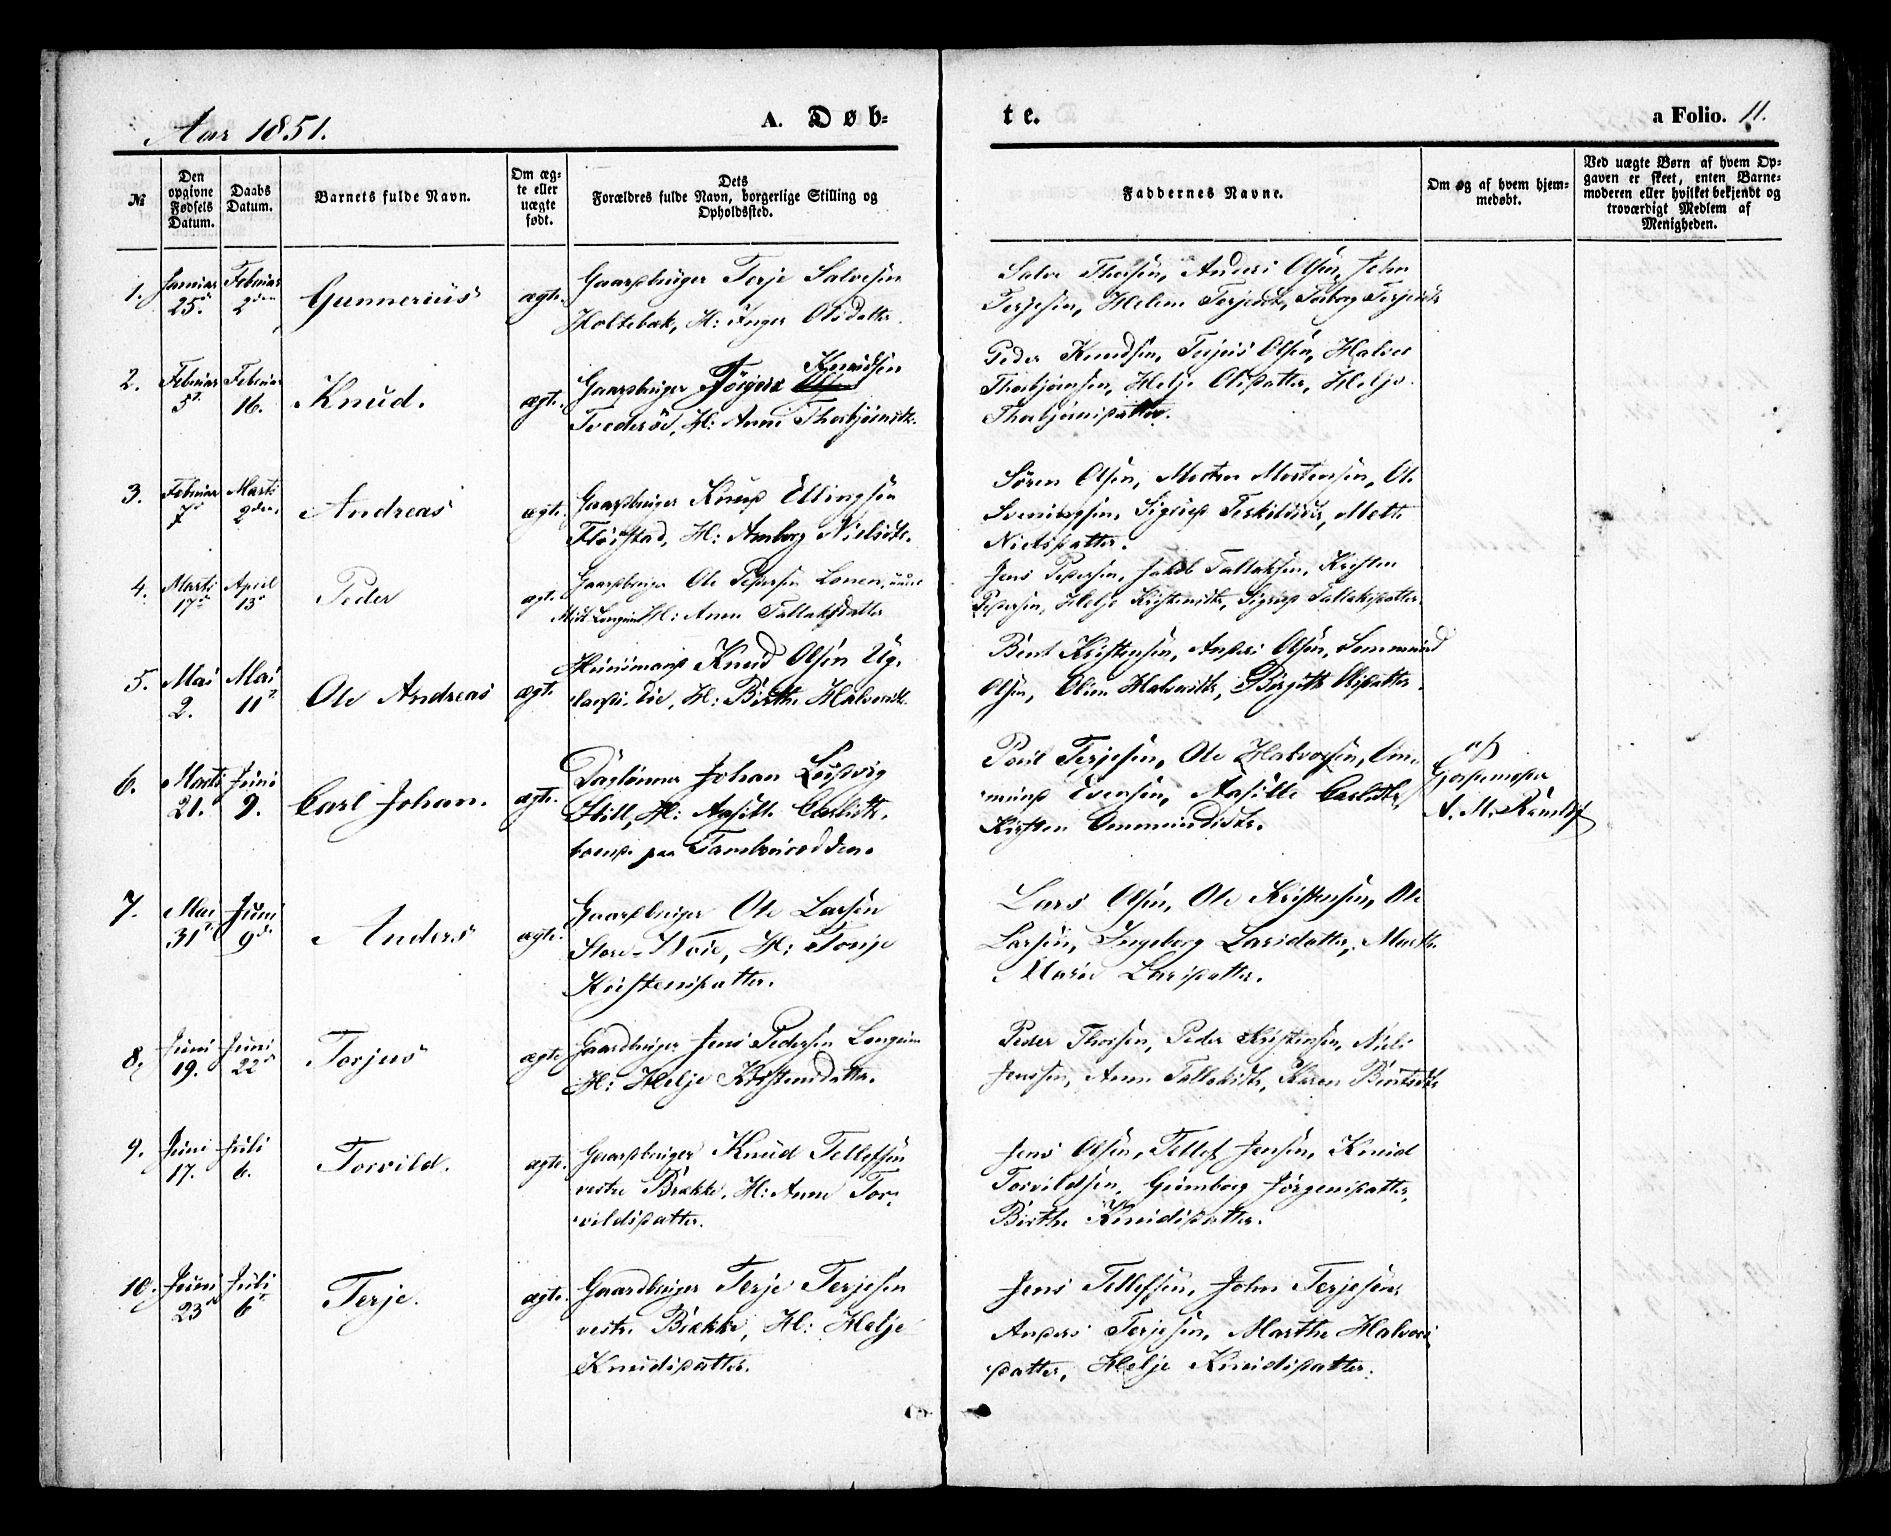 Aar 1851.
A. Døb-
te.
a Folio. 11.
№
Den opgivne Fødsels Datum.
Daabs Datum.
Barnets fulde Navn.
Om ægte eller uægte født.
Dets Forældres fulde Navn, borgerlige Stilling og Opholdssted.
Faddernes Navne.
Om og af hvem hjemmedøbt.
Ved uægte Børn af hvem Opgaven er skeet, enten Barnemoderen eller hvilket bekjendt og troværdigt Medlem af Menigheden.
1. Januar 25de Februar 2den Gunnerius ægte.
Gaardbruger Terje Salvesen
Holtebæk, H: Inger Olsdatter.
Salve Thorsen, Anders Olsen, John
Terjesen, Helene Terjedtr, Torborg Terjesdtr
2. Februar 5t. Februar 16. Knud. ægte.
Gaardbruger Jörgen Knudsen
Tvederöd, H: Anne Thorbjörnsdtr.
Peder Knudsen, Terjus Olsen, Halvor
Thorbjørnsen, Helje Olsdatter, Helje
Thorbjørnsdatter.
3. Februar 7de Marts 2den Andreas ægte.
Gaardbruger Knud Ellingsen
Flørestad, H: Amborg Nielsdtr.
Sören Olsen, Morten Mortensen, Ole
Svenningsen, Sigrid Terkildsdtr, Mette
Nielsdatter.
4. Marts 17de April 13de Peder ægte.
Gaardbruger Ole Pedersen Lonen, under
Midt-Longum H: Anne Tallaksdatter
Jens Pedersen, Jakob Tallaksen, Kristen
Pedersen, Helje Kristensdtr, Sigrid Tallaksdatter.
5. Mai 2. Mai 11t. Ole Andreas ægte.
Huusmand Knud Olsen
H: Birthe Halvorsdtr.
Bent Kristensen, Anders Olsen, Sommund
Olsen, Oline Halvorsdtr, Birgitte Olsdatter.
6. Marts 21. Juni 9. Carl Johan. ægte.
Daglønner Johan Ludvig
Hill, H: Aasille Carlsdtr.
boende paa
Poul Terjesen, Ole Halvorsen, Om-
mund Evensen, Aasille Carlsdtr
Kirsten Ommundsdtr.
af
Gjordemoder
A. M.
7. Mai 31t. Juni 9de Anders ægte.
Gaardbruger Ole Larsen
Store-Noie, H: Tonje
Kristensdatter.
Lars Olsen, Ole Kristensen, Ole
Larsen, Ingeborg Larsdatter, Marthe
Marie Larsdatter.
8. Juni 19. Juni 22de Torjus ægte
Gaardbruger Jens Pedersen Longum
H: Helje Kristensdatter.
Peder Thorsen, Peder Kristensen, Niels
Jenssen, Anne Tallaksdtr, Karen Bentsdtr
9. Juni 17. Juli 6. Torvild. ægte.
Gaardbruger Knud Tellefsen
vestre Brække, H: Anne Tor-
vildsdatter.
Jens Olsen, Tellef Jensen, Knud
Torvildsen, Gunborg Jörgensdatter,
Birthe Knudsdatter.
10. Juni 23de Juli 6t. Terje. ægte.
Gaardbruger Terje Terjesen
vestre Brække, H: Helje
Knudsdatter.
Jens Tellefsen, John Terjesen
Anders Terjesen, Marthe Halvors-
datter, Helje Knudsdatter.